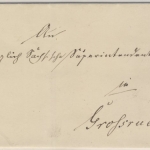 An
glich Sächsische Superintendent
in
Grossrud